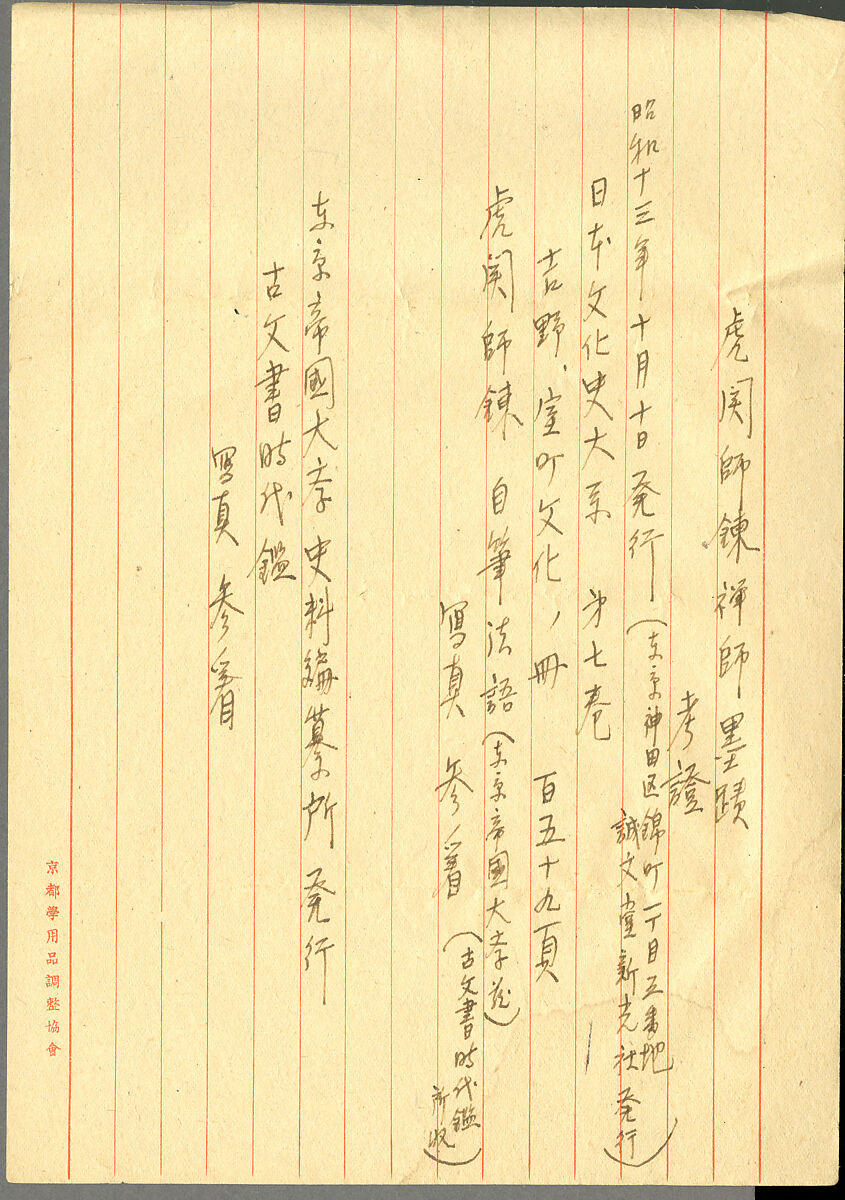 虎関師錬禅師墨蹟
考證
昭和十三年十月十日発行(東京神田区錦町一丁目五番地
誠文堂新光社発行)
日本文化史大系 第七巻
吉野、室町文化ノ冊 百五十九頁
虎関師錬 自筆法語(東京帝國大学蔵)
寫真 参看(古文書時代鑑
所収)
東京帝國大学史料編纂所発行
古文書時代鑑
寫真 参看
京都學用品調整協會